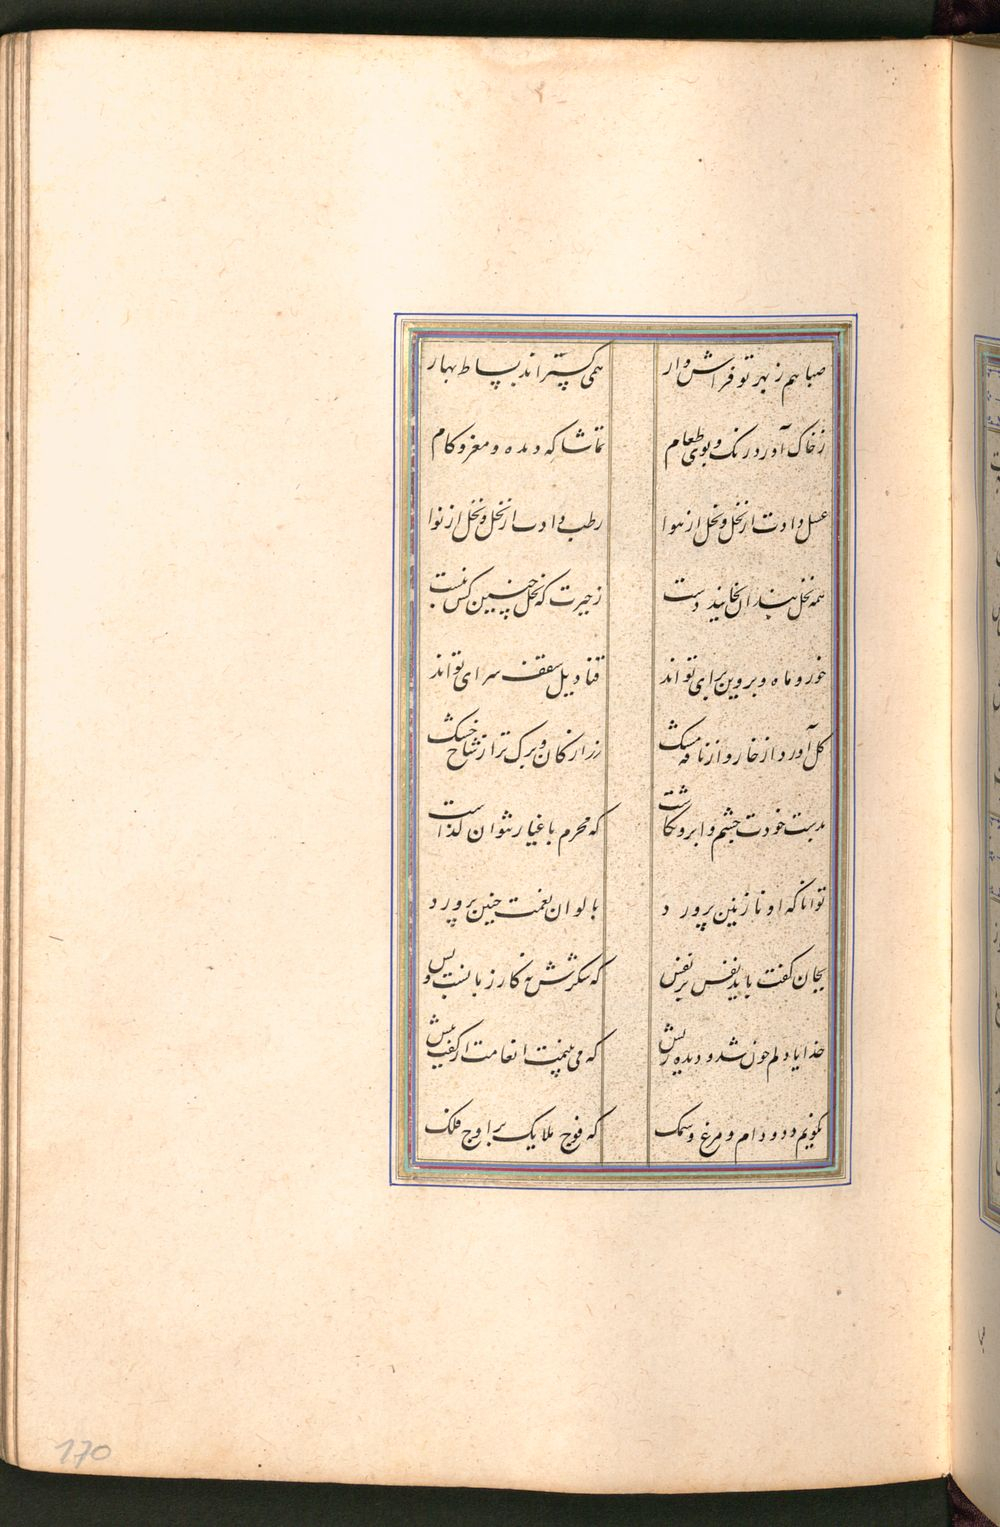 صبا هم ز بهر تو فراش وار
همی گستراند بساط بهار
ز خاک آورد رنگ و بوی طعام
تماشاگه دیده و مغز و کام
عسل دادت از نحل و نحل از هوا
رطب دادت از نخل و نخل از نوا
همه نخل بندان بخایند دست
ز حیرت که نخلی چنین کس نبست
خور و ماه و پروین برای تواند
قنادیل سقف سرای تواند
گل آورد از خار و از نافه مشک
زر از کان و برگ تر از شاخ خشک
بدست خودت چشم و ابرو نگاشت
که محرم باغیار نتوان گذاشت
توانا که او نازنین پرورد
بالوان نعمت چنین پرورد
بجان گفت باید نفس بر نفس
که شکرش نه کار زبانست و بس
خدایا دلم خون شد و دیده ریش
که می بینمت انعامت از گفت بیش
نگویم دد و دام و مرغ و سمک
که فوج ملایک بر اوج فلک
170